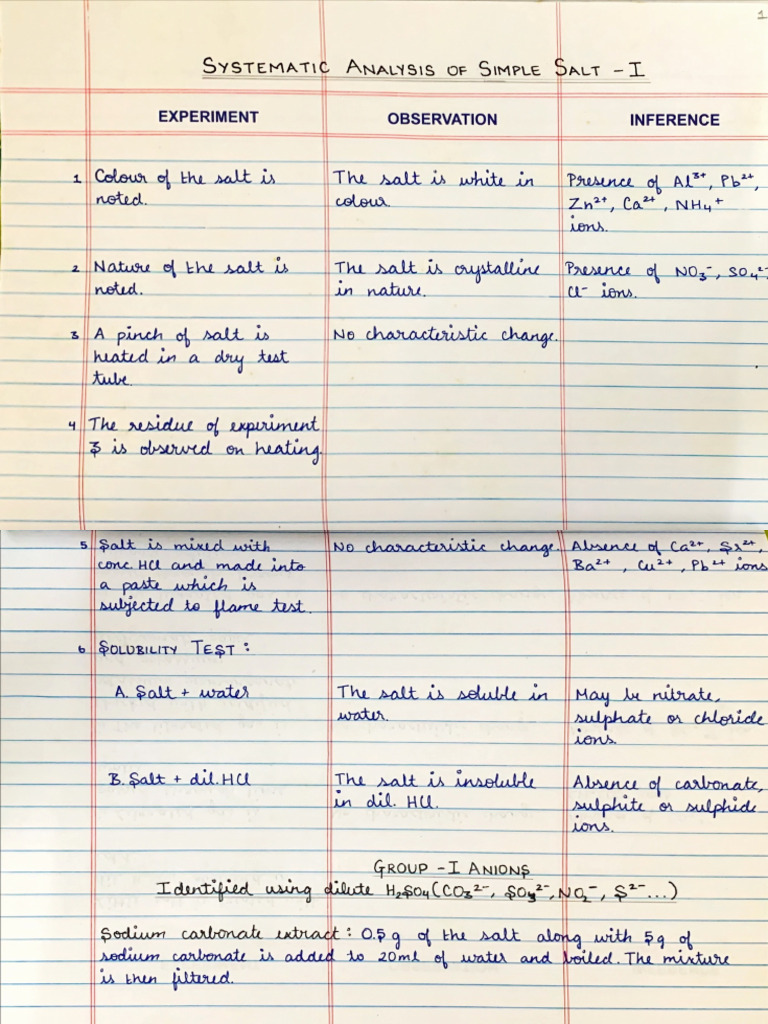 1
SYSTEMATIC ANALYSIS OF SIMPLE SALT - I
EXPERIMENT OBSERVATION INFERENCE
1 Colour of the salt is noted.
The salt is white in colour.
Presence of Al³⁺, Pb²⁺,
Zn²⁺, Ca²⁺, NH₄⁺
ions.
2 Nature of the salt is
noted.
The salt is crystalline
in nature.
Presence of NO₃⁻, SO₄²⁻
Cl⁻ ions.
3 A pinch of salt is
heated in a dry test
tube.
No characteristic change.
4 The residue of experiment
3 is observed on heating.
5 Salt is mixed with
conc. HCl and made into
a paste which is
subjected to flame test.
No characteristic change.
Absence of Ca²⁺, Sr²⁺,
Ba²⁺, Cu²⁺, Pb²⁺ ions
6 SOLUBILITY TEST:
A. Salt + water
The salt is soluble in
water.
May be nitrate,
sulphate or chloride
ions.
B. Salt + dil. HCl
The salt is insoluble
in dil. HCl.
Absence of carbonate,
sulphite or sulphide
ions.
GROUP - I ANIONS
Identified using dilute H₂SO₄ (CO₃²⁻, SO₃²⁻, NO₂⁻, S²⁻...)
Sodium carbonate extract: 0.5g of the salt along with 5g of
sodium carbonate is added to 20ml of water and boiled. The mixture
is then filtered.